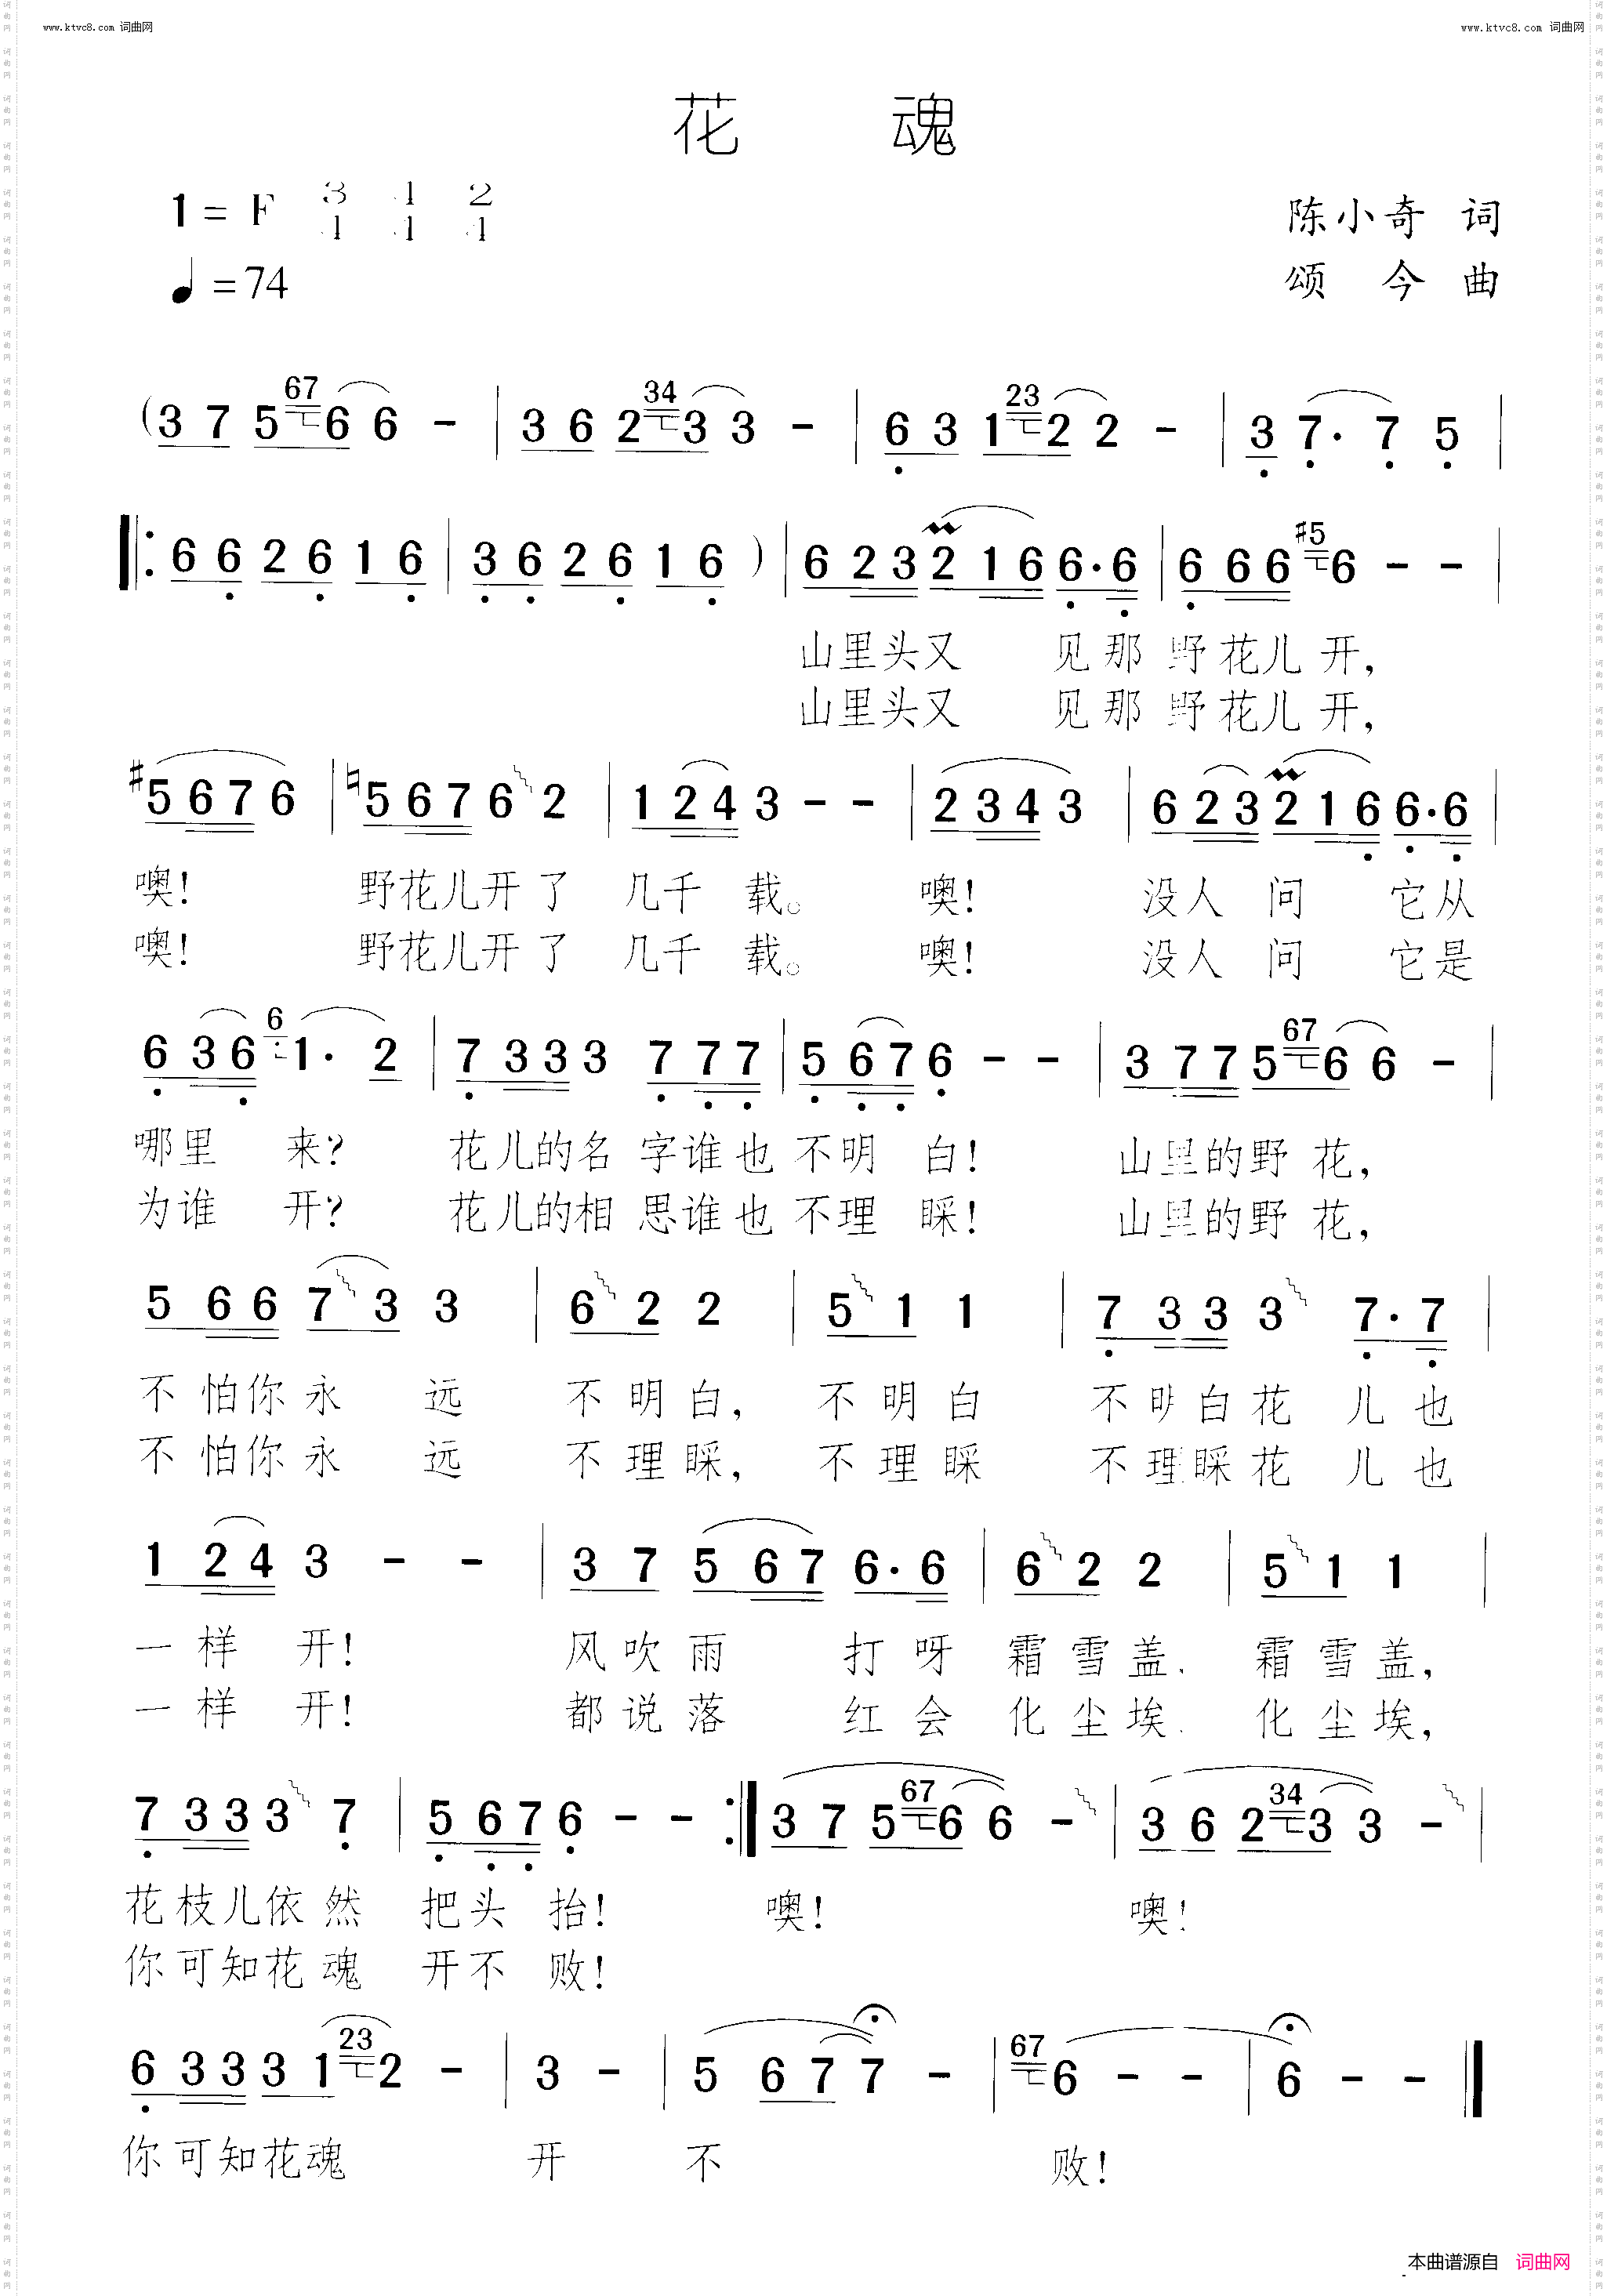 www.ktvc8.com 词曲网 www.ktvc8.com 词曲网
花 魂
1 = F 3/4 4/4 2/4
陈小奇 词
♩ = 74
颂 今 曲
(3 7 5 67 6 6 - | 3 6 2 34 3 3 - | 6 3 1 23 2 2 - | 3 7· 7 5 |
|: 6 6 2 6 1 6 | 3 6 2 6 1 6 ) | 6 2 3 2 1 6 6·6 | 6 6 6 #5 6 - - |
山里头又 见那野花儿开,
山里头又 见那野花儿开,
#5 6 7 6 | ♮5 6 7 6 2 | 1 2 4 3 - - | 2 3 4 3 | 6 2 3 2 1 6 6·6 |
噢! 野花儿开了 几千 载。 噢! 没人 问 它从
噢! 野花儿开了 几千 载。 噢! 没人 问 它是
6 3 6 6 1· 2 | 7 3 3 3 7 7 7 | 5 6 7 6 - - | 3 7 7 5 67 6 6 - |
哪里 来? 花儿的名 字谁也 不明 白! 山里的野 花,
为谁 开? 花儿的相 思谁也 不理 睬! 山里的野 花,
5 6 6 7 3 3 | 6 2 2 | 5 1 1 | 7 3 3 3 7·7 |
不怕你永 远 不明白, 不明白 不明白花 儿也
不怕你永 远 不理睬, 不理睬 不理睬花 儿也
1 2 4 3 - - | 3 7 5 6 7 6·6 | 6 2 2 | 5 1 1 |
一样 开! 风吹雨 打呀 霜雪盖、 霜雪盖,
一样 开! 都说落 红会 化尘埃、 化尘埃,
7 3 3 3 7 | 5 6 7 6 - - :| 3 7 5 67 6 6 - | 3 6 2 34 3 3 - |
花枝儿依然 把头 抬! 噢! 噢!
你可知花魂 开不 败!
6 3 3 3 1 23 2 - | 3 - | 5 6 7 7 - | 67 6 - - | 6 - - ||
你可知花魂 开 不 败!
本曲谱源自 词曲网